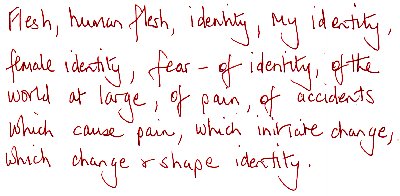 Flesh, human flesh, identity, my identity,
female identity, fear – of identity, of the
world at large, of pain, of accidents
which cause pain, which initiate change,
which change & shape identity.